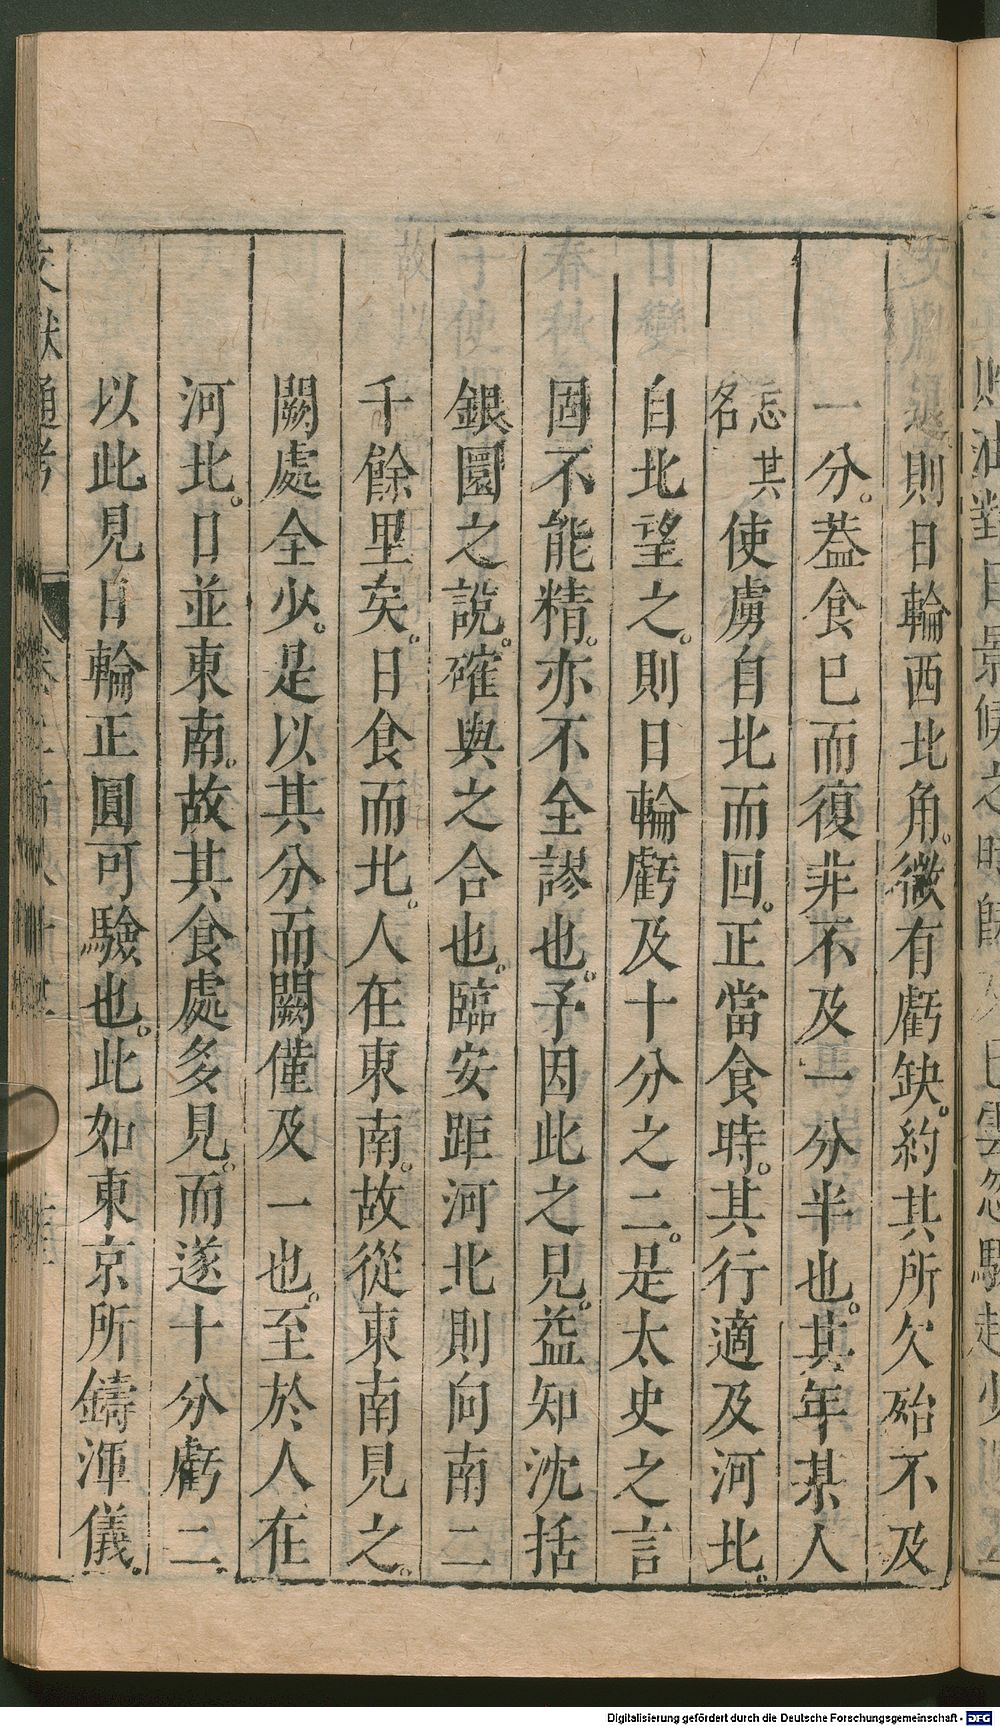 則日輪西北角。微有虧缺。約其所欠殆不及
一分。葢食巳而復非不及一分半也。其年某人
忘其名使虜自北而回。正當食時。其行適及河北。
自北望之。則日輪虧及十分之二。是太史之言
固不能精。亦不全謬也。予因此之見。益知沈括
銀圜之說。確與之合也。臨安距河北則向南二
千餘里矣。日食而北。人在東南。故從東南見之。
闕處全少。是以其分而闕僅及一也。至於人在
河北。日並東南。故其食處多見。而遂十分虧二
以此見日輪正圓可驗也。此如東京所鑄渾儀。
文獻通考
Digitalisierung gefördert durch die Deutsche Forschungsgemeinschaft - DFG